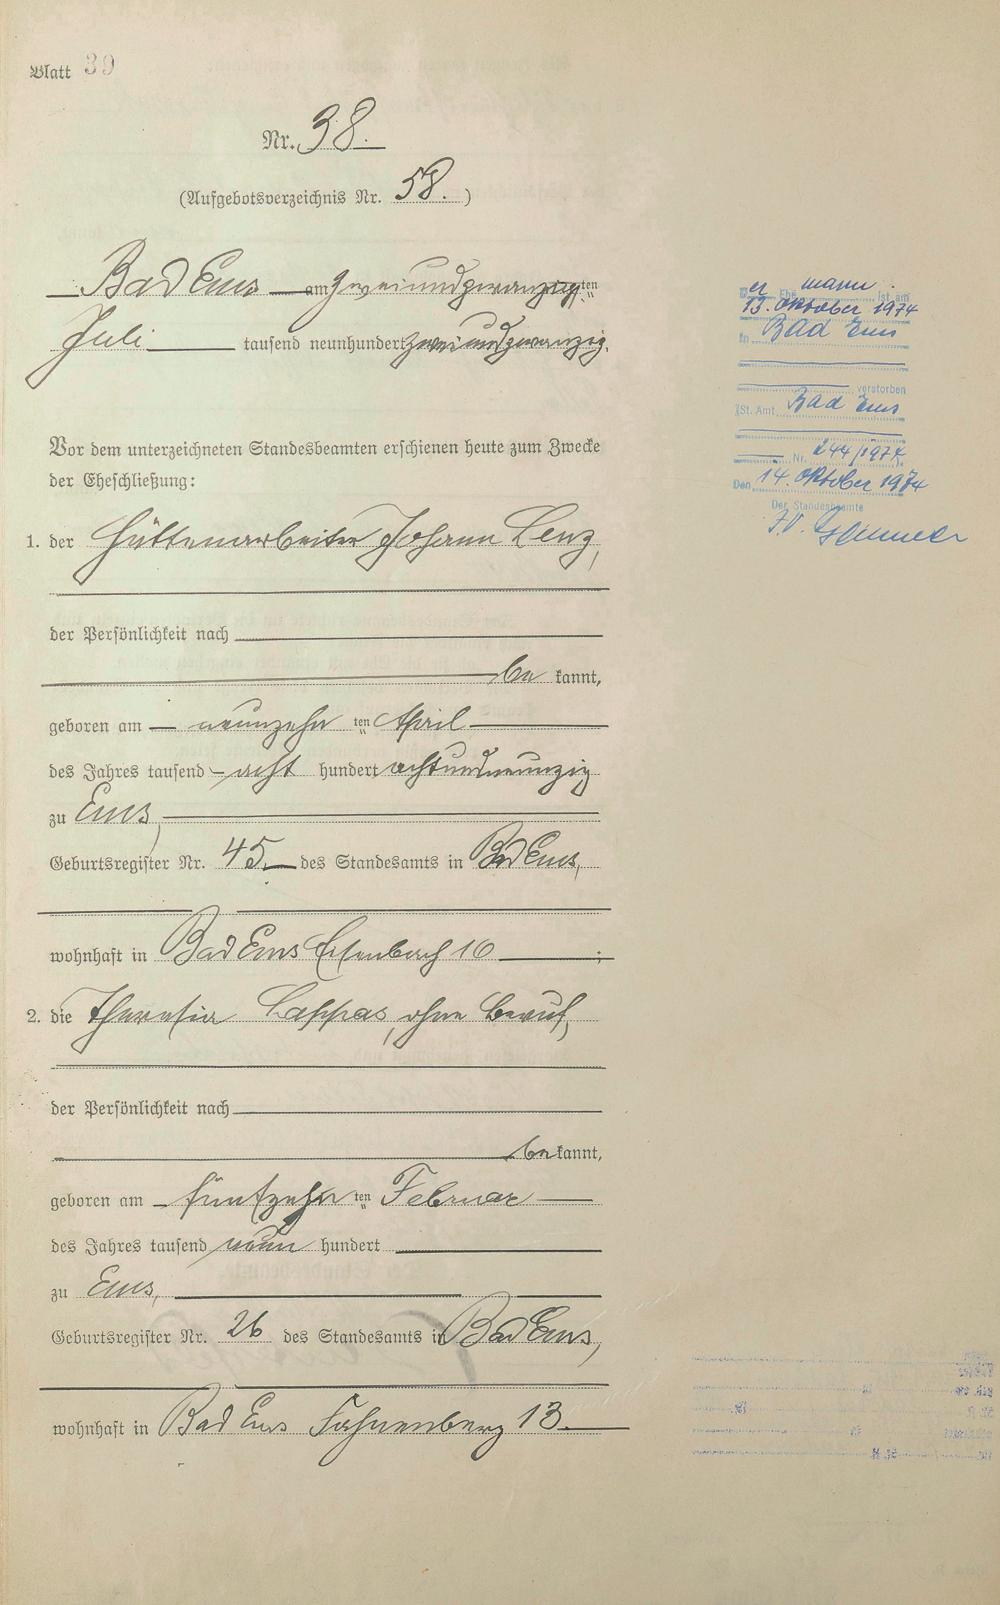 Blatt 39
Nr. 38.
(Aufgebotsverzeichnis Nr. 58.)
Bad Ems am zweiundzwanzigten
Juli tausend neunhundert zweiundzwanzig.
Vor dem unterzeichneten Standesbeamten erschienen heute zum Zwecke
der Eheschließung:
1. der Hüttenarbeiter Johann Lenz,
der Persönlichkeit nach
be kannt,
geboren am neunzehn ten April
des Jahres tausend acht hundert achtundneunzig
zu Ems,
Geburtsregister Nr. 45. des Standesamts in Bad Ems,
wohnhaft in Bad Ems Eisenbach 10 ;
2. die Theresia Cappas, ohne Beruf,
der Persönlichkeit nach
be kannt,
geboren am fünfzehn ten Februar
des Jahres tausend neun hundert
zu Ems,
Geburtsregister Nr. 26 des Standesamts in Bad Ems,
wohnhaft in Bad Ems Fahnenberg 13
Der Ehemann ist am
13. Oktober 1974
in Bad Ems
verstorben
St. Amt Bad Ems
Nr. 244/1974.
Den 14. Oktober 1974
Der Standesbeamte
I.V.